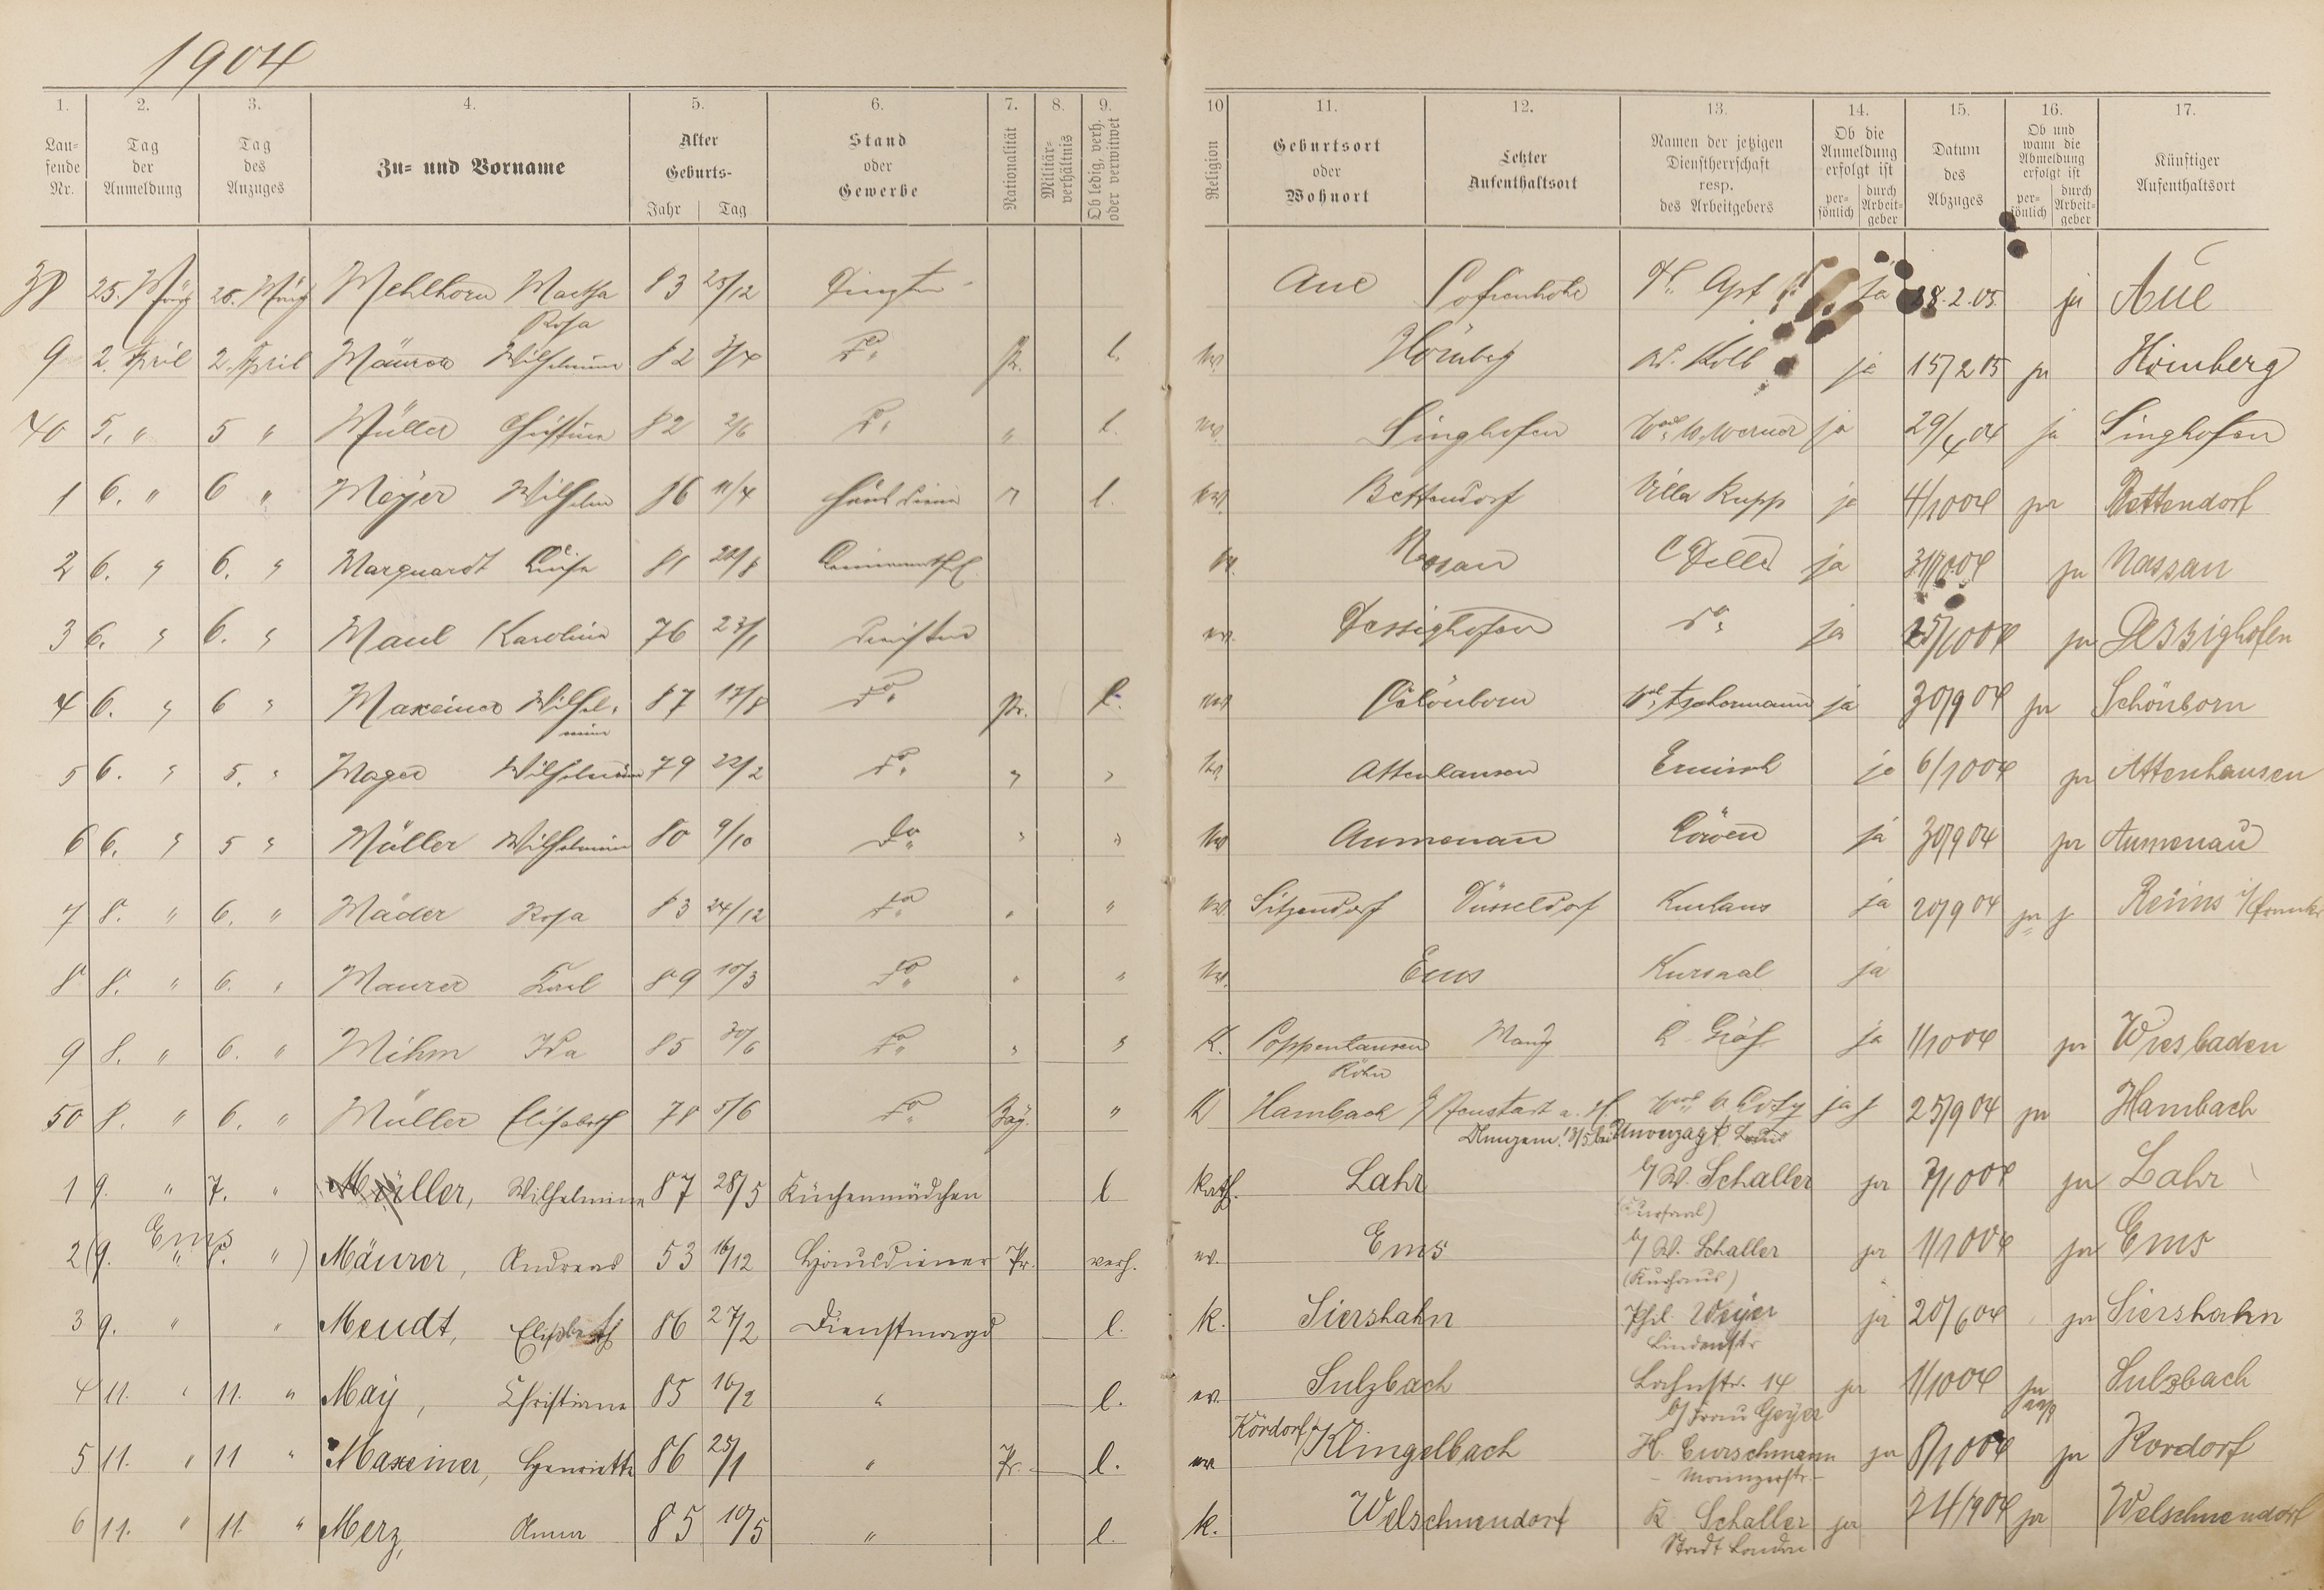 1904
1. 2. 3. 4. 5. 6. 7. 8. 9. 10 11. 12. 13. 14. 15. 16. 17.
Lau-
fende
Nr.
Tag
der
Anmeldung
Tag
des
Anzuges
Zu- und Vorname
Alter
Geburts-
Jahr Tag
Stand
oder
Gewerbe
Nationalität
Militär-
verhältnis
Ob ledig, verh.
oder verwitwet
Religion
Geburtsort
oder
Wohnort
Letzter
Aufenthaltsort
Namen der jetzigen
Dienstherrschaft
resp.
des Arbeitgebers
Ob die
Anmeldung
erfolgt ist
per-
sönlich
durch
Arbeit-
geber
Datum
des
Abzuges
Ob und
wann die
Abmeldung
erfolgt ist
per-
sönlich
durch
Arbeit-
geber
Künftiger
Aufenthaltsort
38 25. März 26. März Mehlhorn Martha 83 25/12 Aue ja 28.2.05 ja Aue
Rosa
9 2. April 2. April Mäurer Wilhelmine 82 3/4 do. Pr. l. ev. Hömberg W. Kolb ja 15/2 05 ja Hömberg
40 5. " 5 " Müller Christine 82 2/6 do. " l. ev. Singhofen Wwe W. Werner ja 29/4 04 ja Singhofen
1 6. " 6 " Meyer Wilhelm 86 11/4 Hausdiener " l. ev. Bettendorf Villa Rupp ja 4/10 04 ja Bettendorf
2 6. " 6. " Marquardt Luise 81 28/8 ev. Nassau C Deller ja 31/10 04 ja Nassau
3 6. " 6. " Maul Karoline 76 23/1 ev. Dessighofen do. ja 25/10 04 ja Dessighofen
4 6. " 6 " Maxeiner Wilhel- 87 17/8 do. Pr. l. ev. Schönborn ja 30/9 04 ja Schönborn
mine
5 6. " 5. " Mager Wilhelmine 79 22/2 do. " " ev. Attenhausen Ermisch ja 6/10 04 ja Attenhausen
6 6. " 5 " Müller Wilhelmine 80 9/10 do. " " ev. Aumenau Löwen ja 30/9 04 ja Aumenau
7 8. " 6. " Mäder Rosa 83 24/12 do. " " ev. Sitzendorf Düsseldorf Kurhaus ja 20/9 04 ja Reims i/Frankr.
8 8. " 6. " Maurer Karl 89 10/3 do. " " ev. Ems Kursaal ja
9 8. " 6. " Mihm Ida 85 30/6 do. " " K. Poppenhausen Mainz Gräf ja 1/10 04 ja Wiesbaden
Röhn
50 8. " 6. " Müller Elisabeth 78 5/6 do. Bay. " K Hambach b/Neustadt a. H. ja 25/9 04 ja Hambach
13/5 bei Unverzagt
1 9. " 7. " Müller, Wilhelmine 87 28/5 Küchenmädchen l kath. Lahr b/ W. Schaller ja 3/10 04 ja Lahr
(Kursaal)
Ems
2 (9. " 8. ") Mäurer, Andreas 53 16/12 Hausdiener Pr. verh. ev. Ems b/ W. Schaller ja 1/10 04 ja Ems
(Kurhaus)
3 9. " " Meudt, Elisabeth 86 27/2 Dienstmagd l. k. Siershahn Phil. Weyer ja 20/6 04 ja Siershahn
Lindenstr.
4 11. " 11. " May, Christiane 85 16/2 " l. ev. Sulzbach Lahnstr. 14 ja 1/10 04 ja Sulzbach
b/ Frau Geyer
5 11. " 11 " Maxeiner, Henriette 86 25/1 " Pr. l. ev Kördorf/Klingelbach H. Curschmann ja 8/10 04 ja Kördorf
- Mainzerstr. -
6 11. " 11. " Merz, Anna 85 10/5 " l. k. Welschneudorf K. Schaller ja 24/9 04 ja Welschneudorf
Stadt London